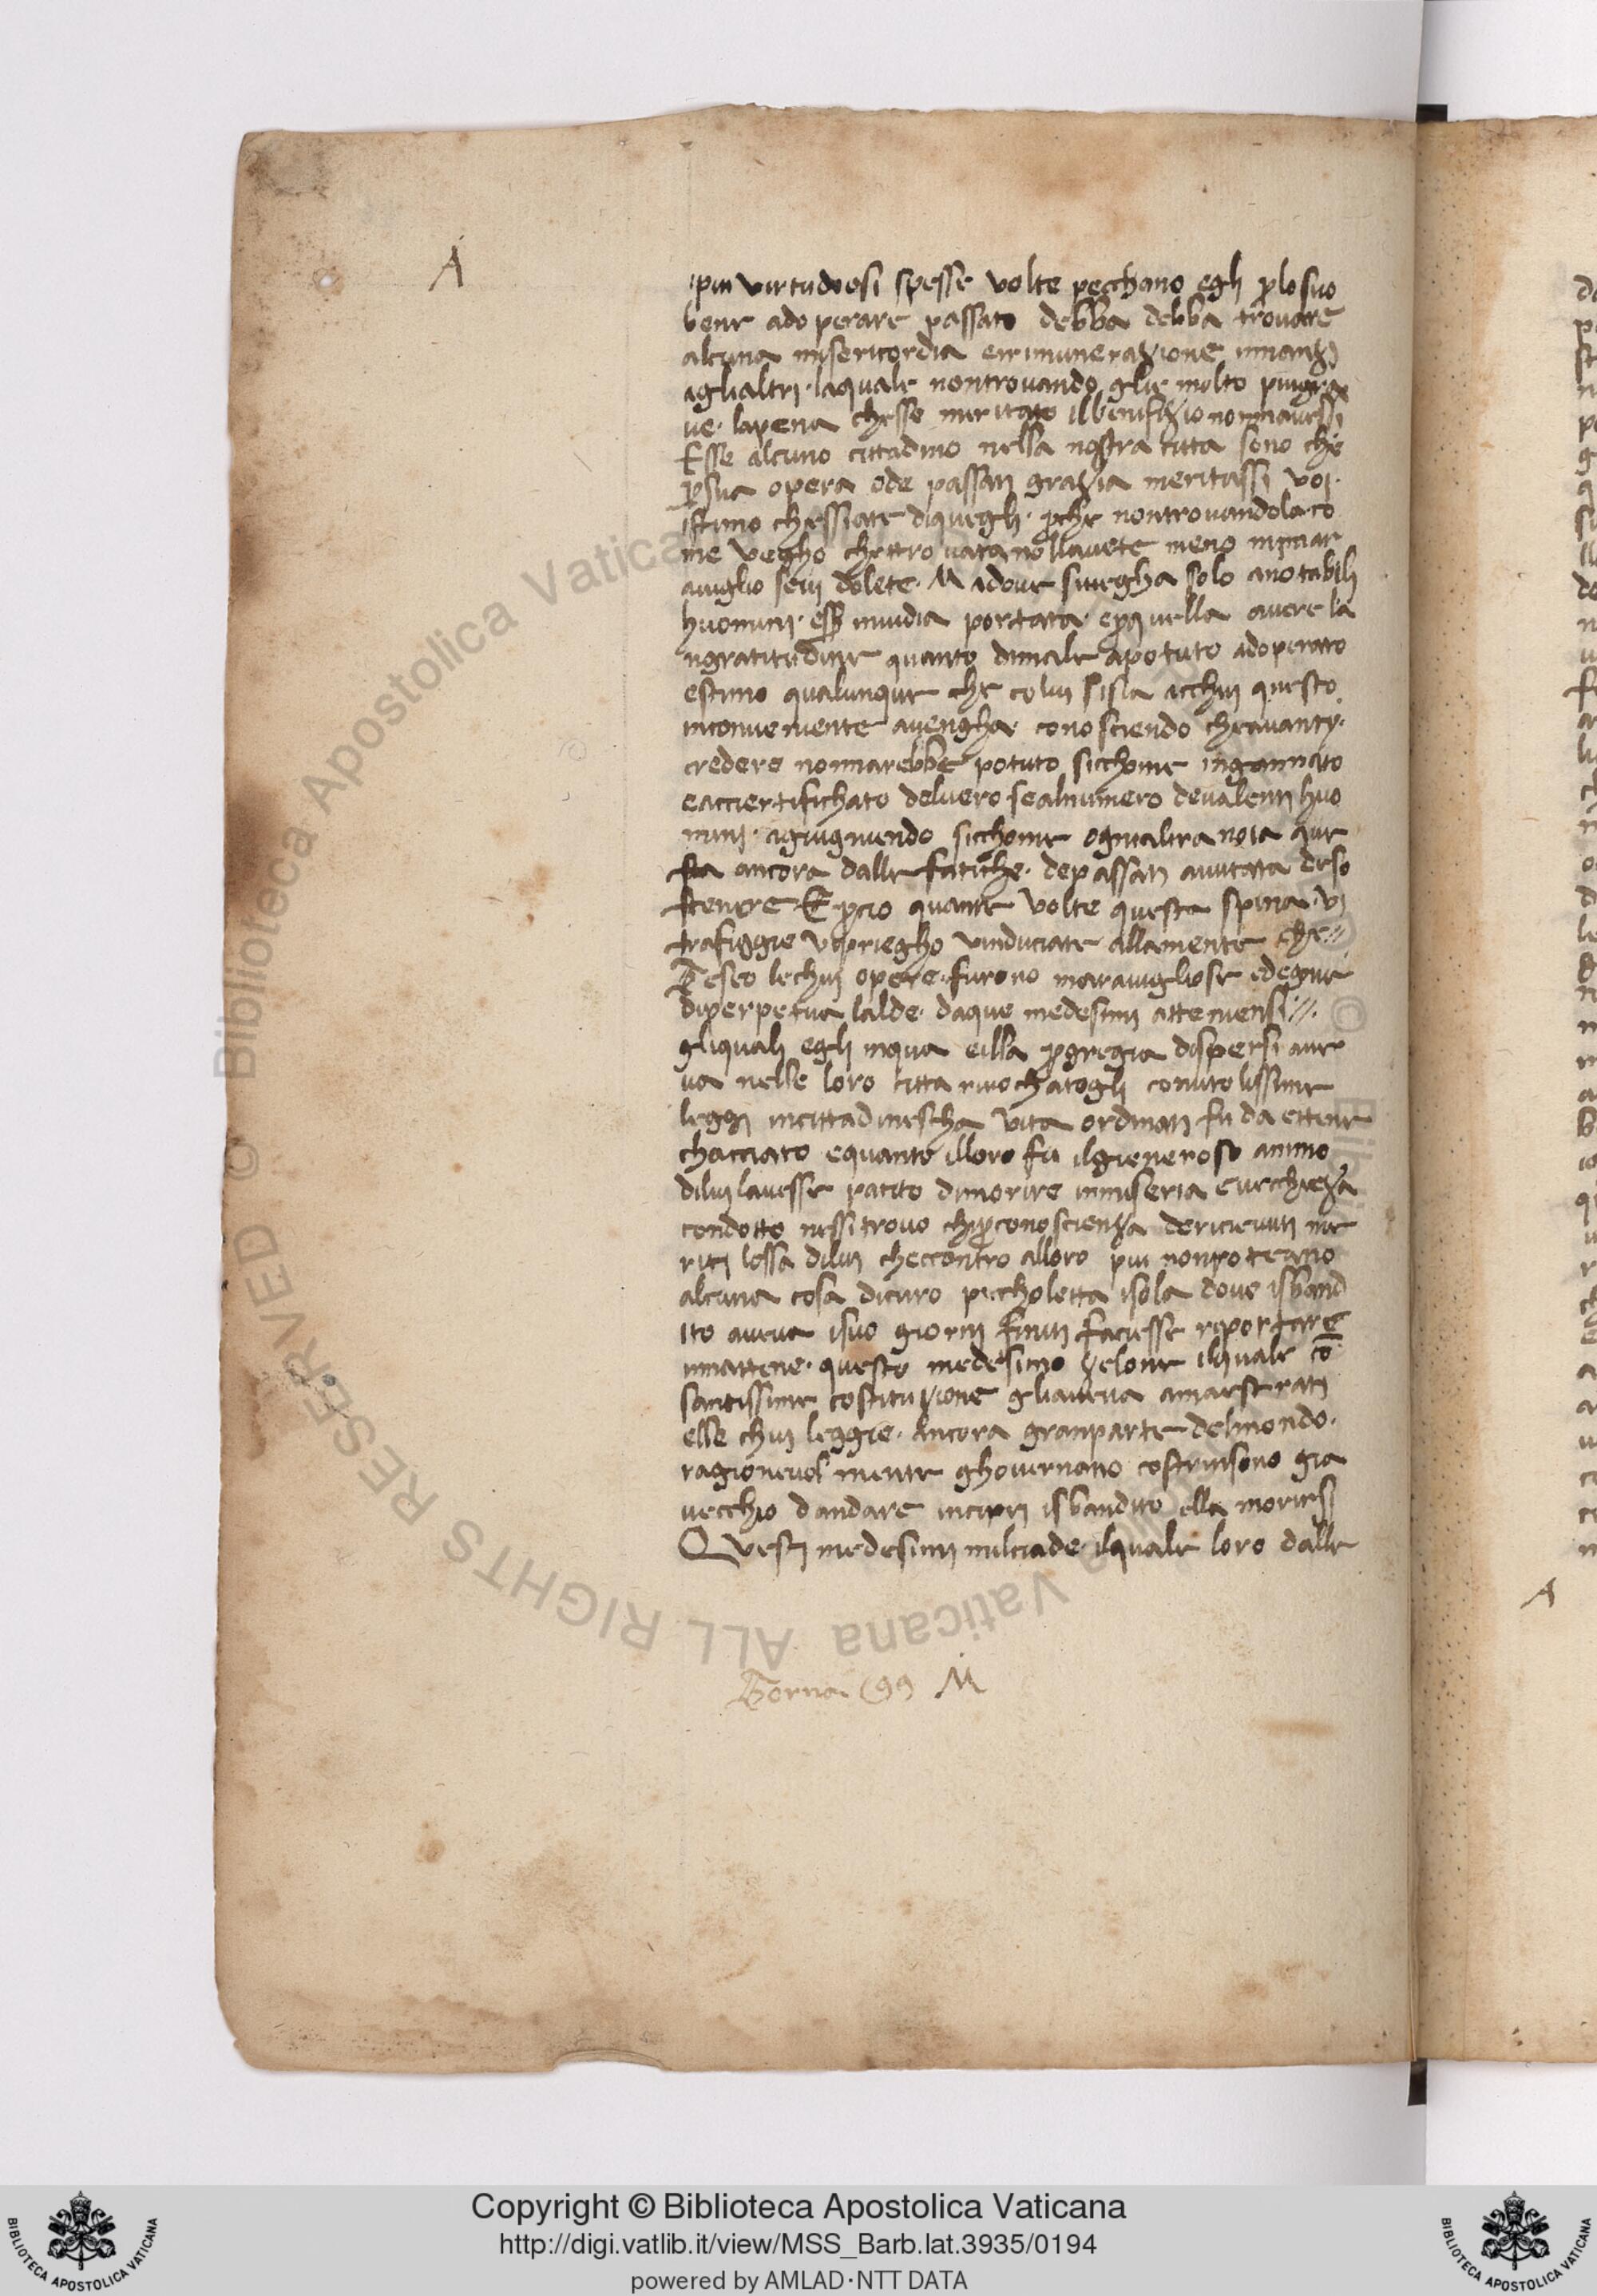 A
ipiu virtudiosi spesse volte pecchano egli ꝑlosuo
bene adoperare passato debba debba trovare
alcuna misericordia eirimunerazione innanzi
aglialtri · laquale nontrovando glie molto piugra
ve · lapena chesse meritato ilbenifizio nonnavessi
Esse alcuno cittadino nella nostra citta sono che
ꝑsua opera ode passati grazia meritassi voi ·
istimo chessiate diquegli · ꝑche nontrovandola · co
me vegho chettrovata nollavete meno mimar
aviglio sevi dolete · Madove sinegha solo anotabili
huomini · invidia portata · eꝑquella avere la
ngratitudine quanto dimale apotuto adoperato
estimo qualunque che colui sisia acchui questo
inconveniente avengha · conosciendo cheavanty ·
credere nonnarebbe potuto sicchome ingannato
eaccertifichato delvero sealnumero devalenti huo
mini · agiugniendo sicchome ognialtra noia que
sta ancora dalle fatiche · depassati aiutata deso
stenere · Eꝑcio quante volte questa spina · vi
trafiggie vipriegho vinduciate allamente che //
Teseo lechui opere · furono maravigliose edegne
diperpetua lalde · daque medesimi atteniensi · //.
gliquali egli inqua eilla ꝑgregia dispersi ave
va nelle loro citta rivochatogli conutolissime
leggi incittadinescha vita ordinati fu da ettene
chacciato equanto illoro fu ilgieneroso animo
dilui lavesse patito dimorire inmiseria evecchieza
condotto nessitrovo chiꝑconoscienza dericievuti me
riti lossa dilui checcontro alloro piu nonpoteano
alcuna cosa dicuro piccholetta isola dove isband
ito aveva isuo giorni finiti faciesse riportare
innattene · questo medesimo zelone ilquale cō
santissime costituzione gliaveva amaestrati
elle chui leggie · ancora granparte delmondo ·
ragionevol mente ghovernano costrinsono gia
vecchio dandare incipri isbandito ella morirsi
Questi medesimi milciade · ilquale loro dalle
Torna (99 M
A
Copyright © Biblioteca Apostolica Vaticana
http://digi.vatlib.it/view/MSS_Barb.lat.3935/0194
powered by AMLAD·NTT DATA
BIBLIOTECA APOSTOLICA VATICANA
BIBLIOTECA APOSTOLICA VATICANA
© Biblioteca Apostolica Vaticana ALL RIGHTS RESERVED